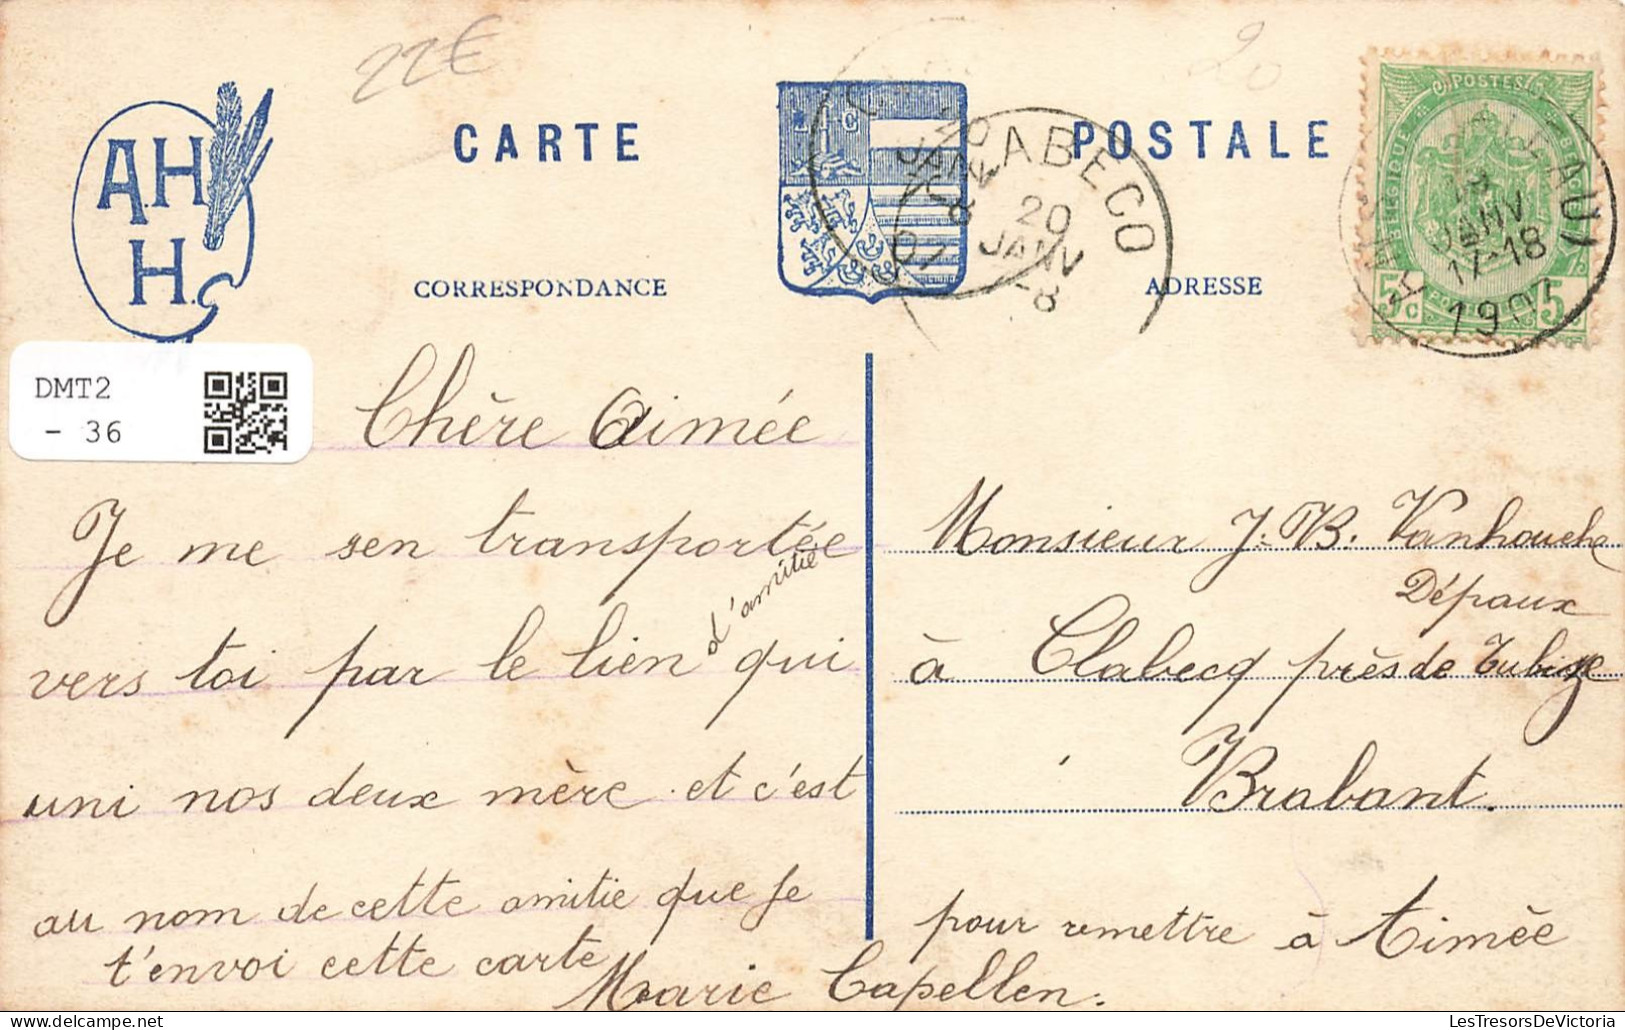 22€
20
A.H
H.
CARTE POSTALE
CORRESPONDANCE
ADRESSE
L C
CLABECQ
20
JANV
-8
POSTES
BELGIQUE
5c 5c
JANV
17-18
1907
DMT2
- 36
Chère Aimée
Je me sen transportée
vers toi par le lien d'amitié qui
uni nos deux mère et c'est
au nom de cette amitie que je
t'envoi cette carte
Marie Capellen.
Monsieur J-B. Vanhouche
Dépaux
à Clabecq près de Tubize
Brabant.
pour remettre à Aimèe
LesTresorsDeVictoria - delcampe.net